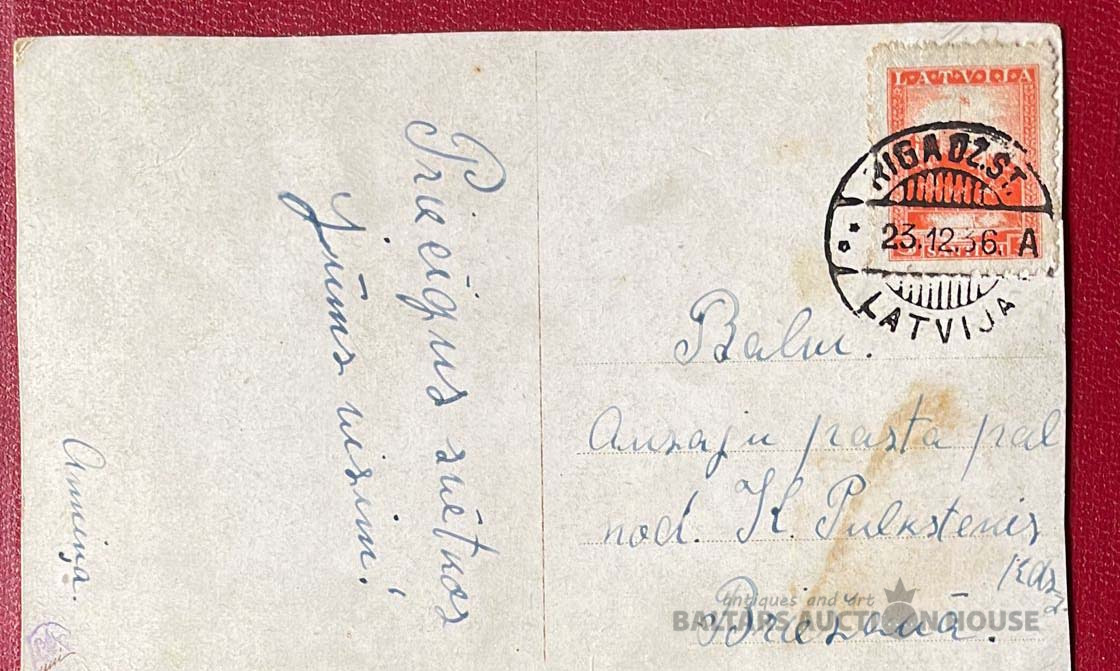 Priecīgus svētkos
jums visim!
Anniņa.
LATVIJA
RIGA DZ.ST.
23.12.36. A
LATVIJA
Balvi.
pasta pal
nod. K. Pulkstenis
antiques and art
BALTARS AUCTION HOUSE